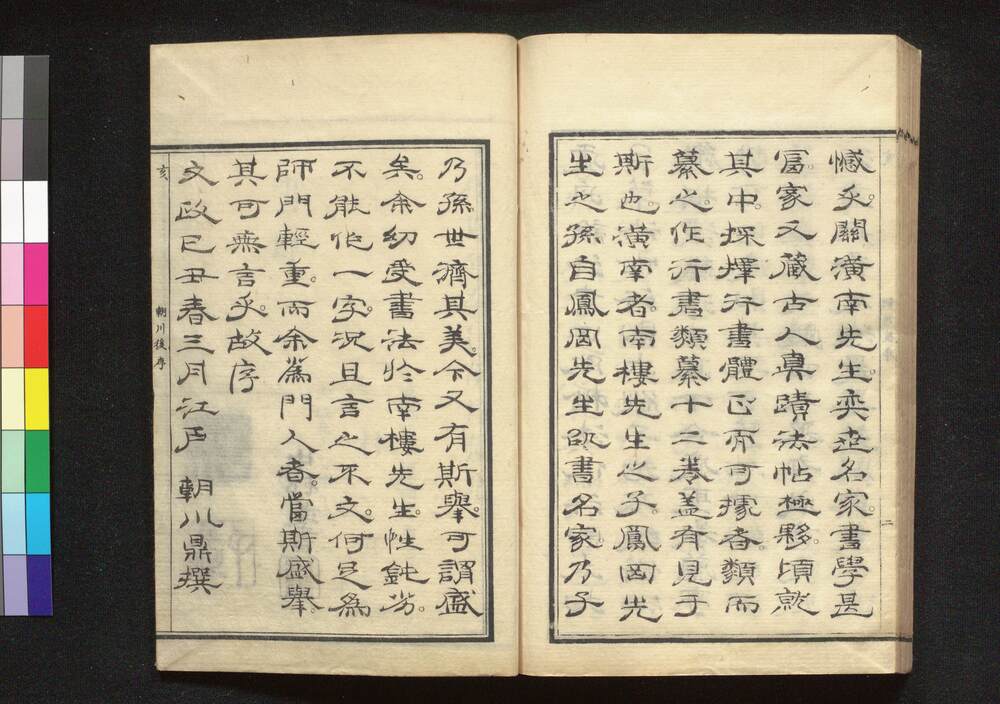 憾乎。關潢南先生。奕世名家。書學甚
富。家又藏古人眞蹟法帖極夥。頃就
其中。採擇行書體正而可據者。類而
纂之。作行書類纂十二卷。蓋有見于
斯也。潢南者。南樓先生之子。鳳岡先
生之孫。自鳳岡先生以書名家。乃子
二
乃孫世濟其美。今又有斯擧。可謂盛
矣。余幼受書法於南樓先生。性鈍劣。
不能作一字。況且言之不文。何足爲
師門輕重。而余爲門人者。當斯盛擧。
其可無言乎。故序
文政己丑春三月江戶 朝川鼎撰
亥
朝川後序